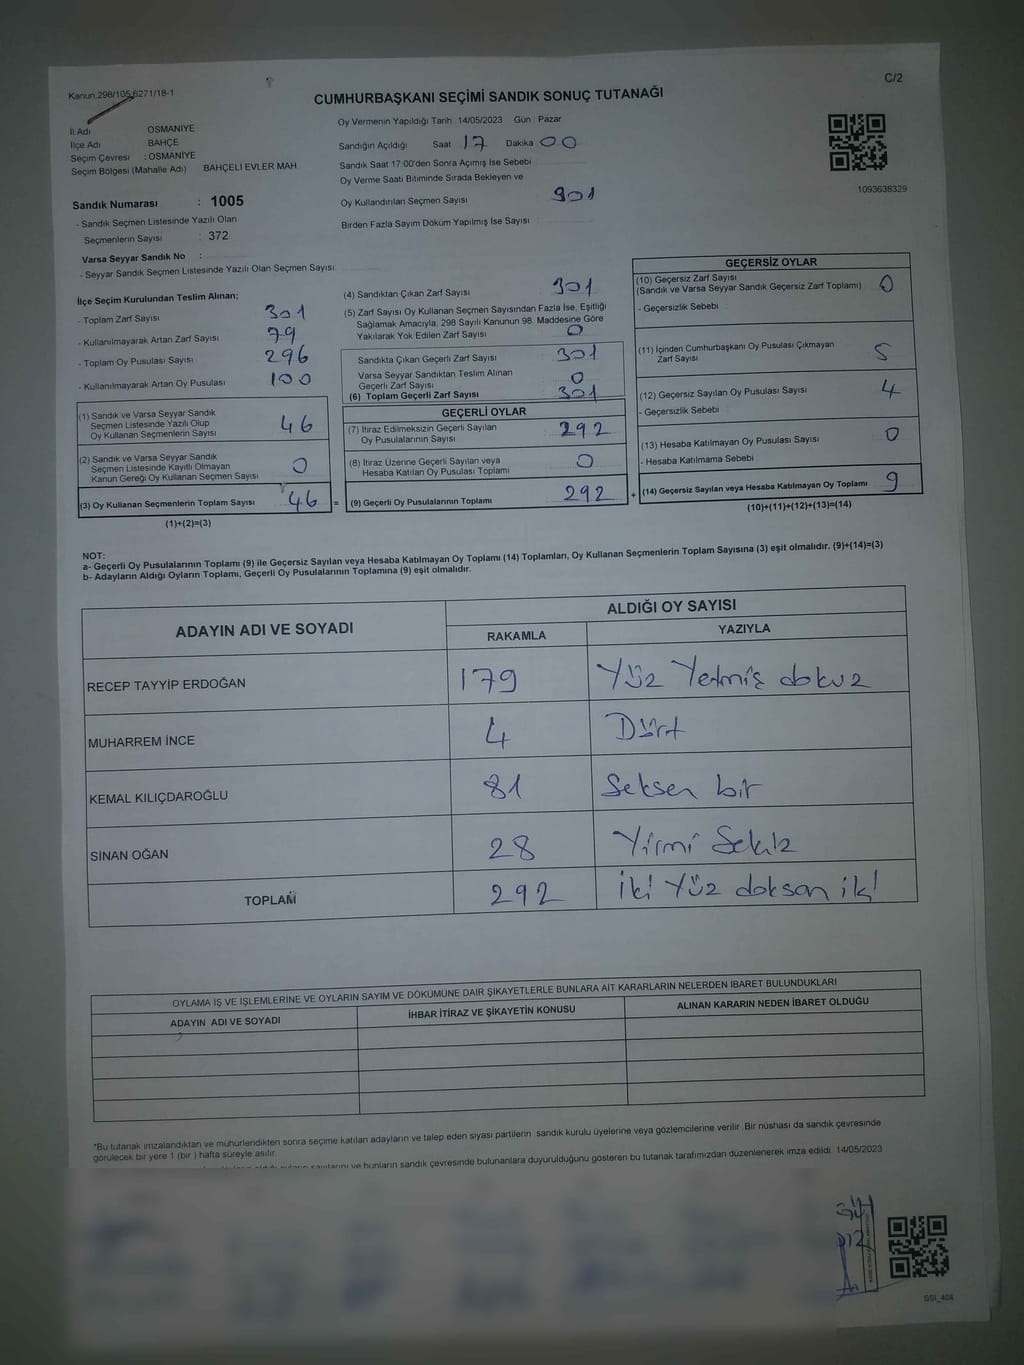 Kanun.298/105,6271/18-1
C/2
CUMHURBAŞKANI SEÇİMİ SANDIK SONUÇ TUTANAĞI
İl Adı OSMANİYE
İlçe Adı BAHÇE
Seçim Çevresi : OSMANİYE
Seçim Bölgesi (Mahalle Adı) BAHÇELİ EVLER MAH
Sandık Numarası : 1005
- Sandık Seçmen Listesinde Yazılı Olan
Seçmenlerin Sayısı : 372
Varsa Seyyar Sandık No :
- Seyyar Sandık Seçmen Listesinde Yazılı Olan Seçmen Sayısı
Oy Vermenin Yapıldığı Tarih 14/05/2023 Gün Pazar
Sandığın Açıldığı Saat 17 Dakika 00
Sandık Saat 17:00'den Sonra Açılmış İse Sebebi
Oy Verme Saati Bitiminde Sırada Bekleyen ve
Oy Kullandırılan Seçmen Sayısı 301
Birden Fazla Sayım Döküm Yapılmış İse Sayısı
1093638329
İlçe Seçim Kurulundan Teslim Alınan;
- Toplam Zarf Sayısı 301
- Kullanılmayarak Artan Zarf Sayısı 79
- Toplam Oy Pusulası Sayısı 296
- Kullanılmayarak Artan Oy Pusulası 100
(1) Sandık ve Varsa Seyyar Sandık
Seçmen Listesinde Yazılı Olup
Oy Kullanan Seçmenlerin Sayısı 46
(2) Sandık ve Varsa Seyyar Sandık
Seçmen Listesinde Kayıtlı Olmayan
Kanun Gereği Oy Kullanan Seçmen Sayısı 0
(3) Oy Kullanan Seçmenlerin Toplam Sayısı 46 =
(1)+(2)=(3)
(4) Sandıktan Çıkan Zarf Sayısı 301
(5) Zarf Sayısı Oy Kullanan Seçmen Sayısından Fazla İse, Eşitliği
Sağlamak Amacıyla, 298 Sayılı Kanunun 98. Maddesine Göre
Yakılarak Yok Edilen Zarf Sayısı 0
Sandıkta Çıkan Geçerli Zarf Sayısı 301
Varsa Seyyar Sandıktan Teslim Alınan
Geçerli Zarf Sayısı 0
(6) Toplam Geçerli Zarf Sayısı 301
GEÇERLİ OYLAR
(7) İtiraz Edilmeksizin Geçerli Sayılan
Oy Pusulalarının Sayısı 292
(8) İtiraz Üzerine Geçerli Sayılan veya
Hesaba Katılan Oy Pusulası Toplamı 0
(9) Geçerli Oy Pusulalarının Toplamı 292 +
GEÇERSİZ OYLAR
(10) Geçersiz Zarf Sayısı
(Sandık ve Varsa Seyyar Sandık Geçersiz Zarf Toplamı) 0
- Geçersizlik Sebebi :
(11) İçinden Cumhurbaşkanı Oy Pusulası Çıkmayan
Zarf Sayısı 5
(12) Geçersiz Sayılan Oy Pusulası Sayısı 4
- Geçersizlik Sebebi
(13) Hesaba Katılmayan Oy Pusulası Sayısı 0
- Hesaba Katılmama Sebebi
(14) Geçersiz Sayılan veya Hesaba Katılmayan Oy Toplamı 9
(10)+(11)+(12)+(13)=(14)
NOT:
a- Geçerli Oy Pusulalarının Toplamı (9) ile Geçersiz Sayılan veya Hesaba Katılmayan Oy Toplamı (14) Toplamları, Oy Kullanan Seçmenlerin Toplam Sayısına (3) eşit olmalıdır. (9)+(14)=(3)
b- Adayların Aldığı Oyların Toplamı, Geçerli Oy Pusulalarının Toplamına (9) eşit olmalıdır.
ADAYIN ADI VE SOYADI ALDIĞI OY SAYISI
RAKAMLA YAZIYLA
RECEP TAYYİP ERDOĞAN 179 Yüz Yetmiş dokuz
MUHARREM İNCE 4 Dört
KEMAL KILIÇDAROĞLU 81 Seksen bir
SİNAN OĞAN 28 Yirmi Sekiz
TOPLAM 292 İki Yüz doksan iki
OYLAMA İŞ VE İŞLEMLERİNE VE OYLARIN SAYIM VE DÖKÜMÜNE DAİR ŞİKAYETLERLE BUNLARA AİT KARARLARIN NELERDEN İBARET BULUNDUKLARI
ADAYIN ADI VE SOYADI İHBAR İTİRAZ VE ŞİKAYETİN KONUSU ALINAN KARARIN NEDEN İBARET OLDUĞU
*Bu tutanak imzalandıktan ve mühürlendikten sonra seçime katılan adayların ve talep eden siyasi partilerin sandık kurulu üyelerine veya gözlemcilerine verilir. Bir nüshası da sandık çevresinde
görülecek bir yere 1 (bir) hafta süreyle asılır.
sayılarını ve bunların sandık çevresinde bulunanlara duyurulduğunu gösteren bu tutanak tarafımızdan düzenlenerek imza edildi. 14/05/2023